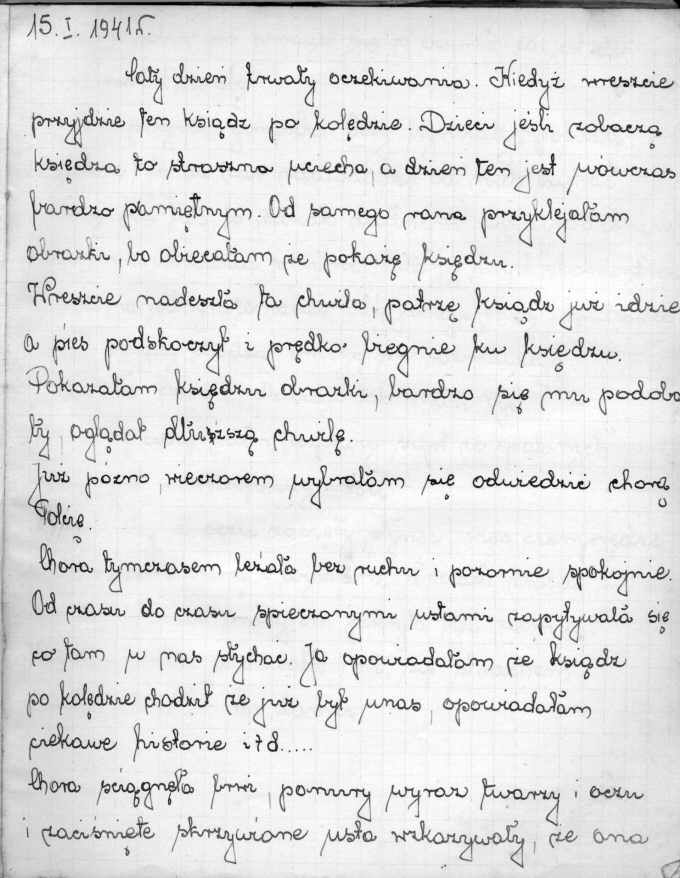 15. I. 1941r.
Cały dzień trwały oczekiwania. Kiedyż wreszcie
przyjdzie ten ksiądz po kolędzie. Dzieci jeśli zobaczą
księdza to straszna uciecha, a dzień ten jest wówczas
bardzo pamiętnym. Od samego rana przyklejałam
obrazki, bo obiecałam że pokażę księdzu.
Wreszcie nadeszła ta chwila, patrzę ksiądz już idzie
a pies podskoczył i prędko biegnie ku księdzu.
Pokazałam księdzu obrazki, bardzo się mu podoba
ły, oglądał dłuższą chwilę.
Już późno, wieczorem wybrałam się odwiedzić chorą
Chora tymczasem leżała bez ruchu i pozornie spokojnie.
Od czasu do czasu spieczonymi ustami zapytywała się
co tam u nas słychać. Ja opowiadałam że ksiądz
po kolędzie chodził że już był unas, opowiadałam
ciekawe historie itd.....
Chora ściągnęła brwi, ponury wyraz twarzy i oczu
i zaciśnięte skrzywione usta wskazywały, że ona